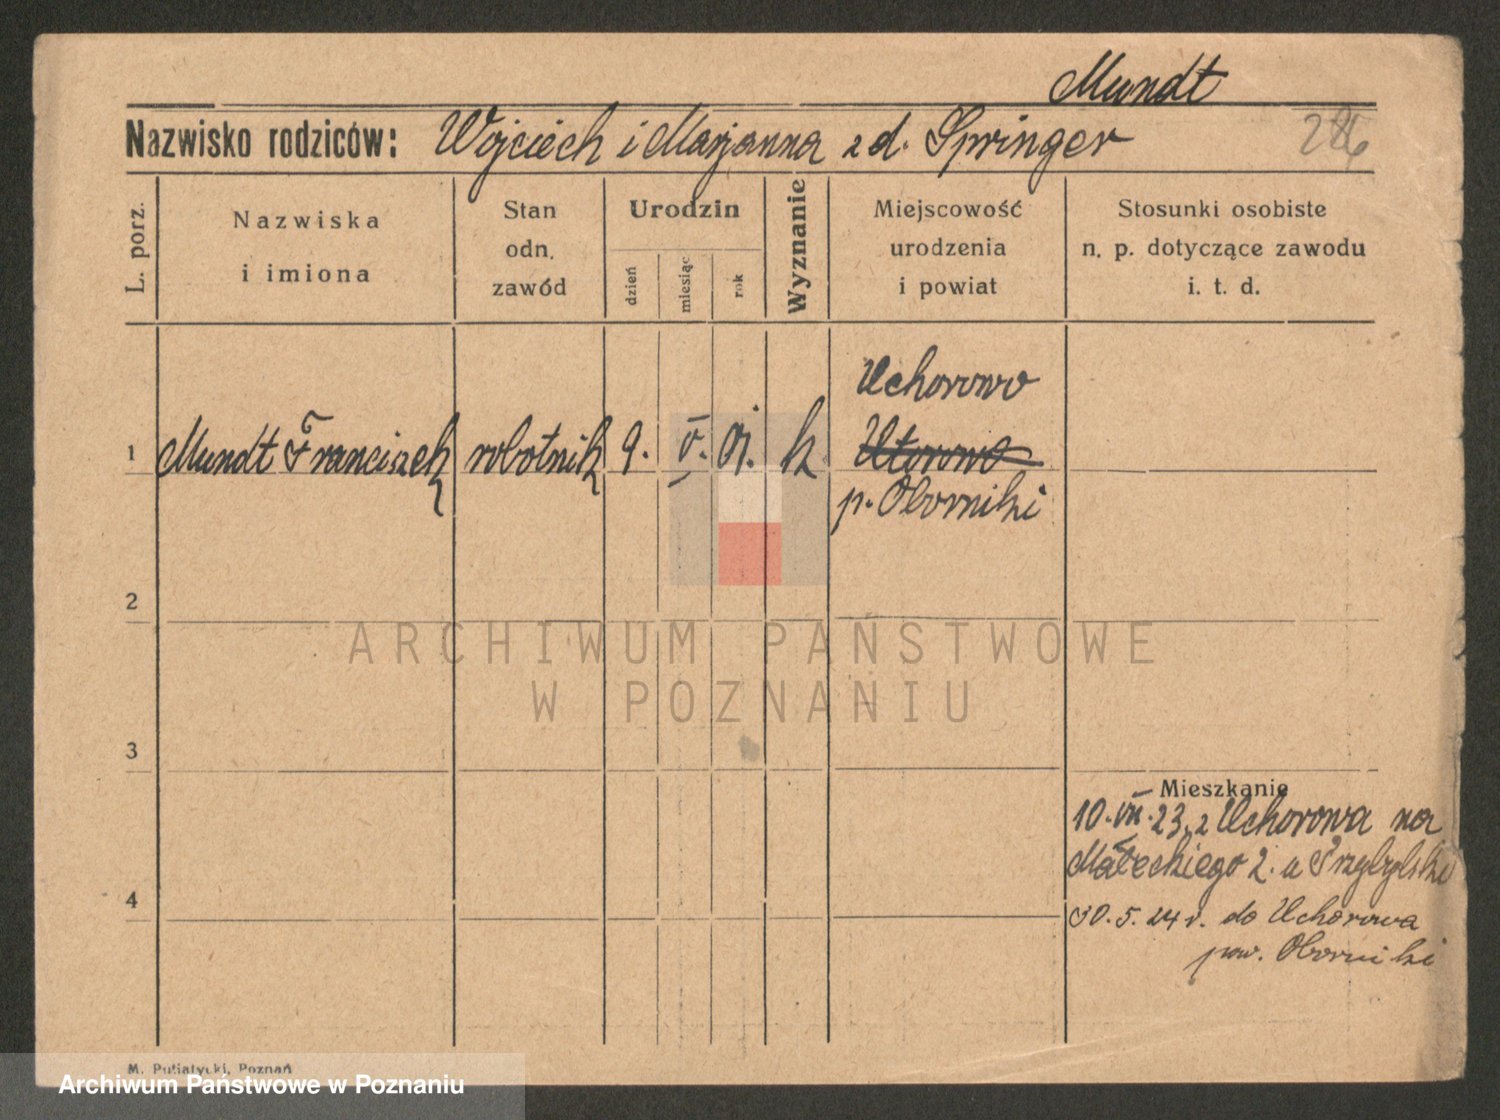 Mundt
Nazwisko rodziców: Wojciech i Marjanna z d. Springer
L. porz.
Nazwiska
i imiona
Stan
odn.
zawód
Urodzin
dzień
miesiąc
rok
Wyznanie
Miejscowość
urodzenia
i powiat
Stosunki osobiste
n. p. dotyczące zawodu
i. t. d.
Uchorowo
1 Mundt Franciszek robotnik 9. V. 01. k. Utorowo
p. Oborniki
2
ARCHIWUM PAŃSTWOWE
W POZNANIU
3
Mieszkanie
10. VII. 23. z Uchorowa na
Małeckiego 2. u Przybylski
4
30. 5. 24 r. do Uchorowa
pow. Oborniki
M. Putiatycki, Poznań
Archiwum Państwowe w Poznaniu